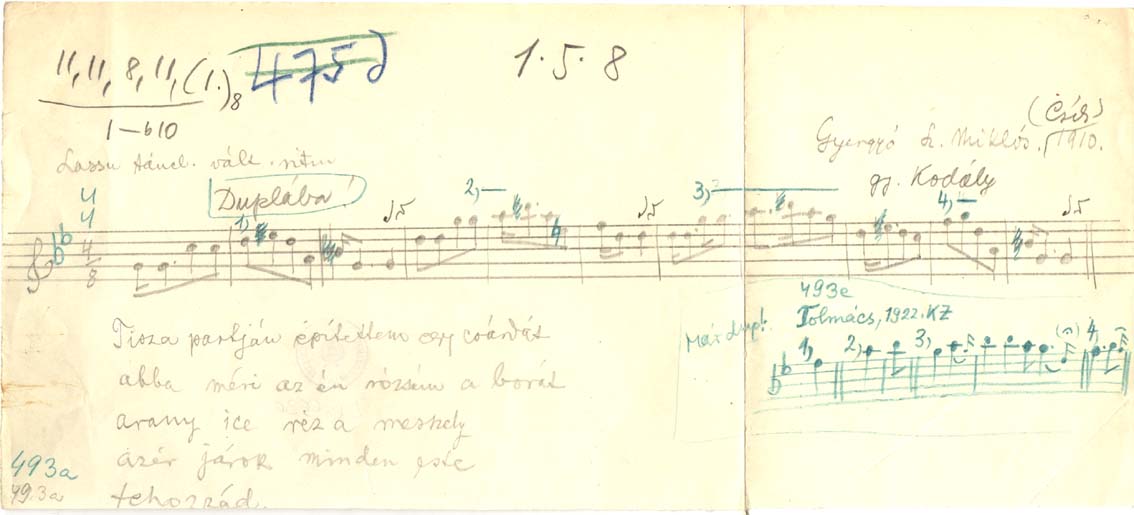 11, 11, 8, 11, (1.)8
475d
1.5.8
1—b10
(Csík)
Lassu táncl. vált. ritm
Gyergyó Sz. Miklós. 1910.
Duplába!
gy. Kodály
4
4
4
8
1)
2)
3)
4)
Tisza partján építettem egy csárdát
abba méri az én rózsám a borát
arany ice réz a meszely
azér járok minden este
tehozzád.
493e
Tolmács, 1922. KZ
Már dupl.
1)
2)
3)
4
493a
493a